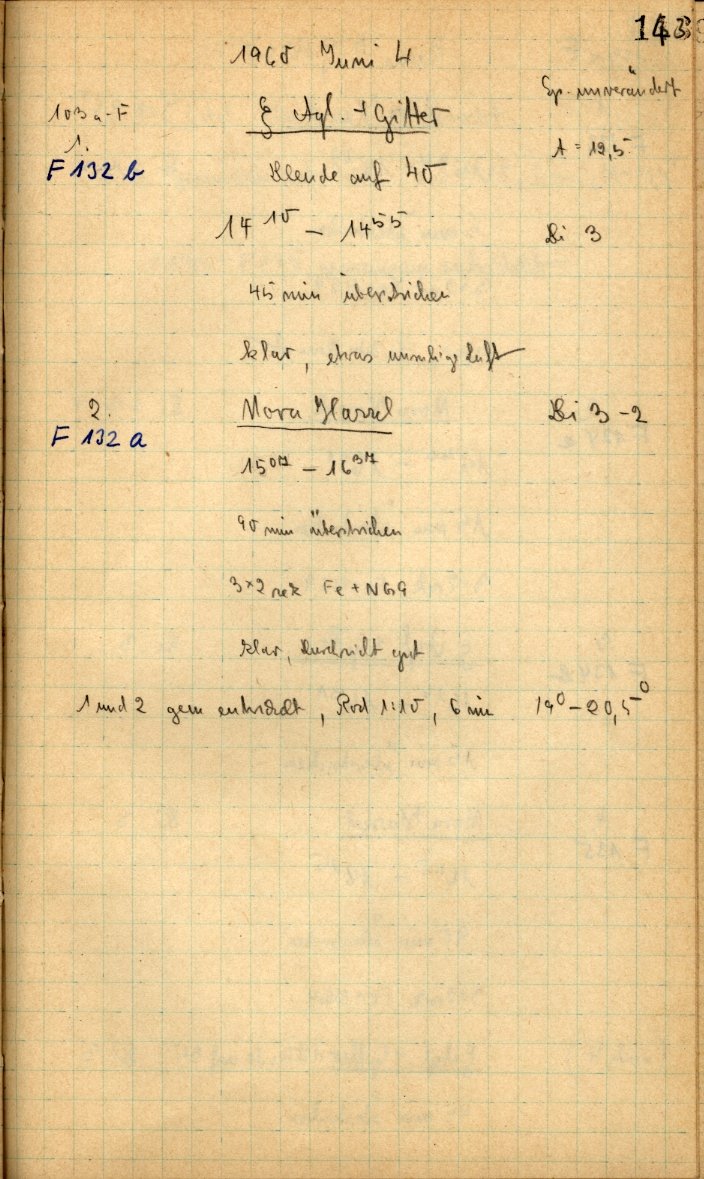 143
Juni 4
Sp. unverändert
103a-F
ξ Aql. + Gitter
1.
A = 19,5
F 132 b
Blende auf 40
14 10 – 14 55
Bi 3
45 min überstrichen
klar, etwas unruhige Luft
2.
Nova
Bi 3-2
F 132 a
15 07 – 16 37
90 min überstrichen
3×2 Fe +
klar, Durchsicht gut
1 und 2 gem entwickelt, Rod 1:10, 6 min 19° – 20,5°